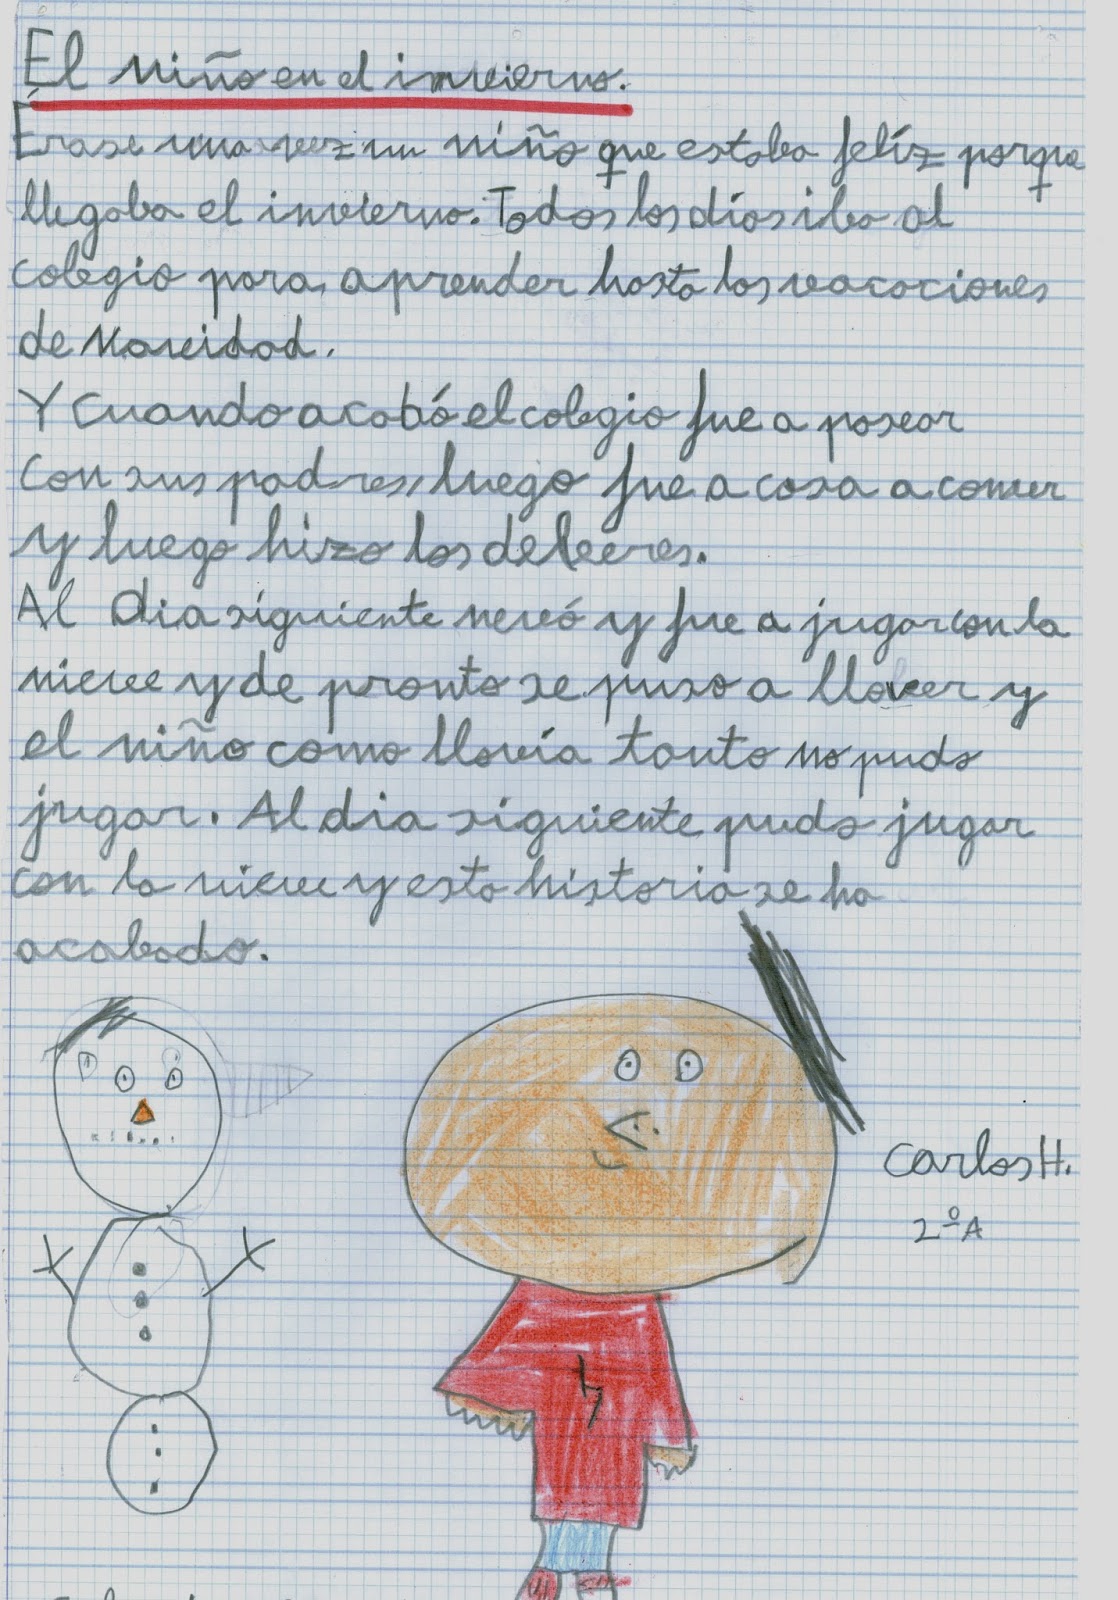 El niño en el invierno.
Érase una vez un niño que estaba felíz porque
llegaba el invierno. Todos los días iba al
colegio para aprender hasta las vacaciones
de Navidad.
Y Cuando acabó el colegio fue a pasear
con sus padres, luego fue a casa a comer
y luego hizo los deberes.
Al Dia siguiente nevó y fue a jugar con la
nieve y de pronto se puso a llover y
el niño como llovía tanto no pudo
jugar. Al dia siguiente pudo jugar
con la nieve y esta historia se ha
acabado.
Carlos H.
2ºA